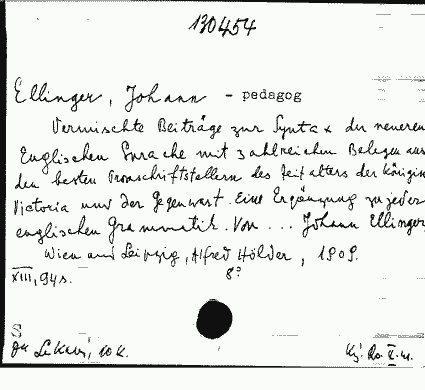 130454
Ellinger, Johann - pedagog
Vermischte Beiträge zur Syntax der neueren
Englischen Sprache mit zahlreichen Belegen aus
den besten Prosaschriftstellern des Zeitalters der Königin
Victoria und der Gegenwart. Eine Ergänzung zu jeder
englischen Grammatik. Von ... Johann Ellinger
Wien und Leipzig, Alfred Hölder, 1909.
XIII, 94 s. 8º
S
10 K.